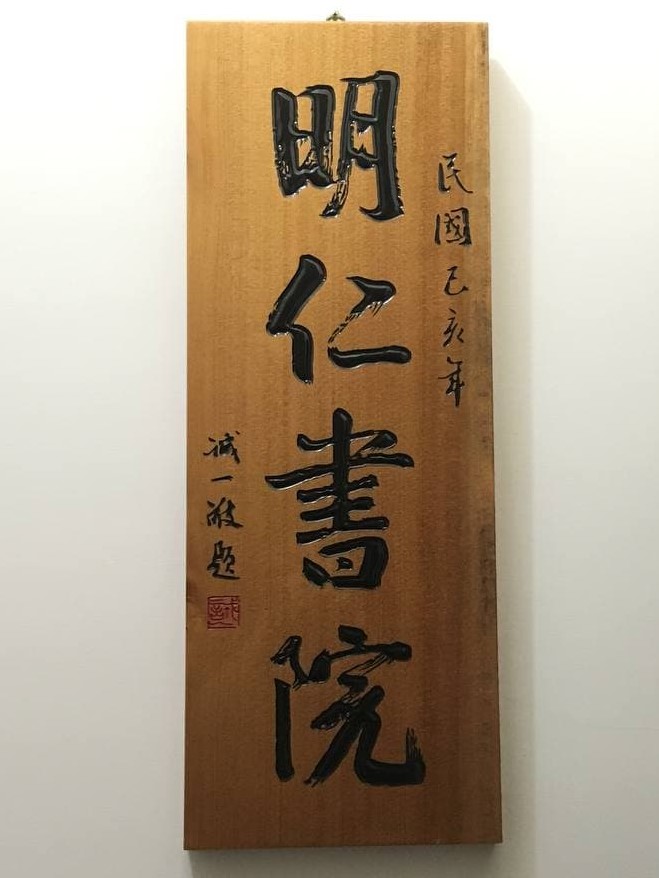 民國己亥年
明仁書院
誠一敬題